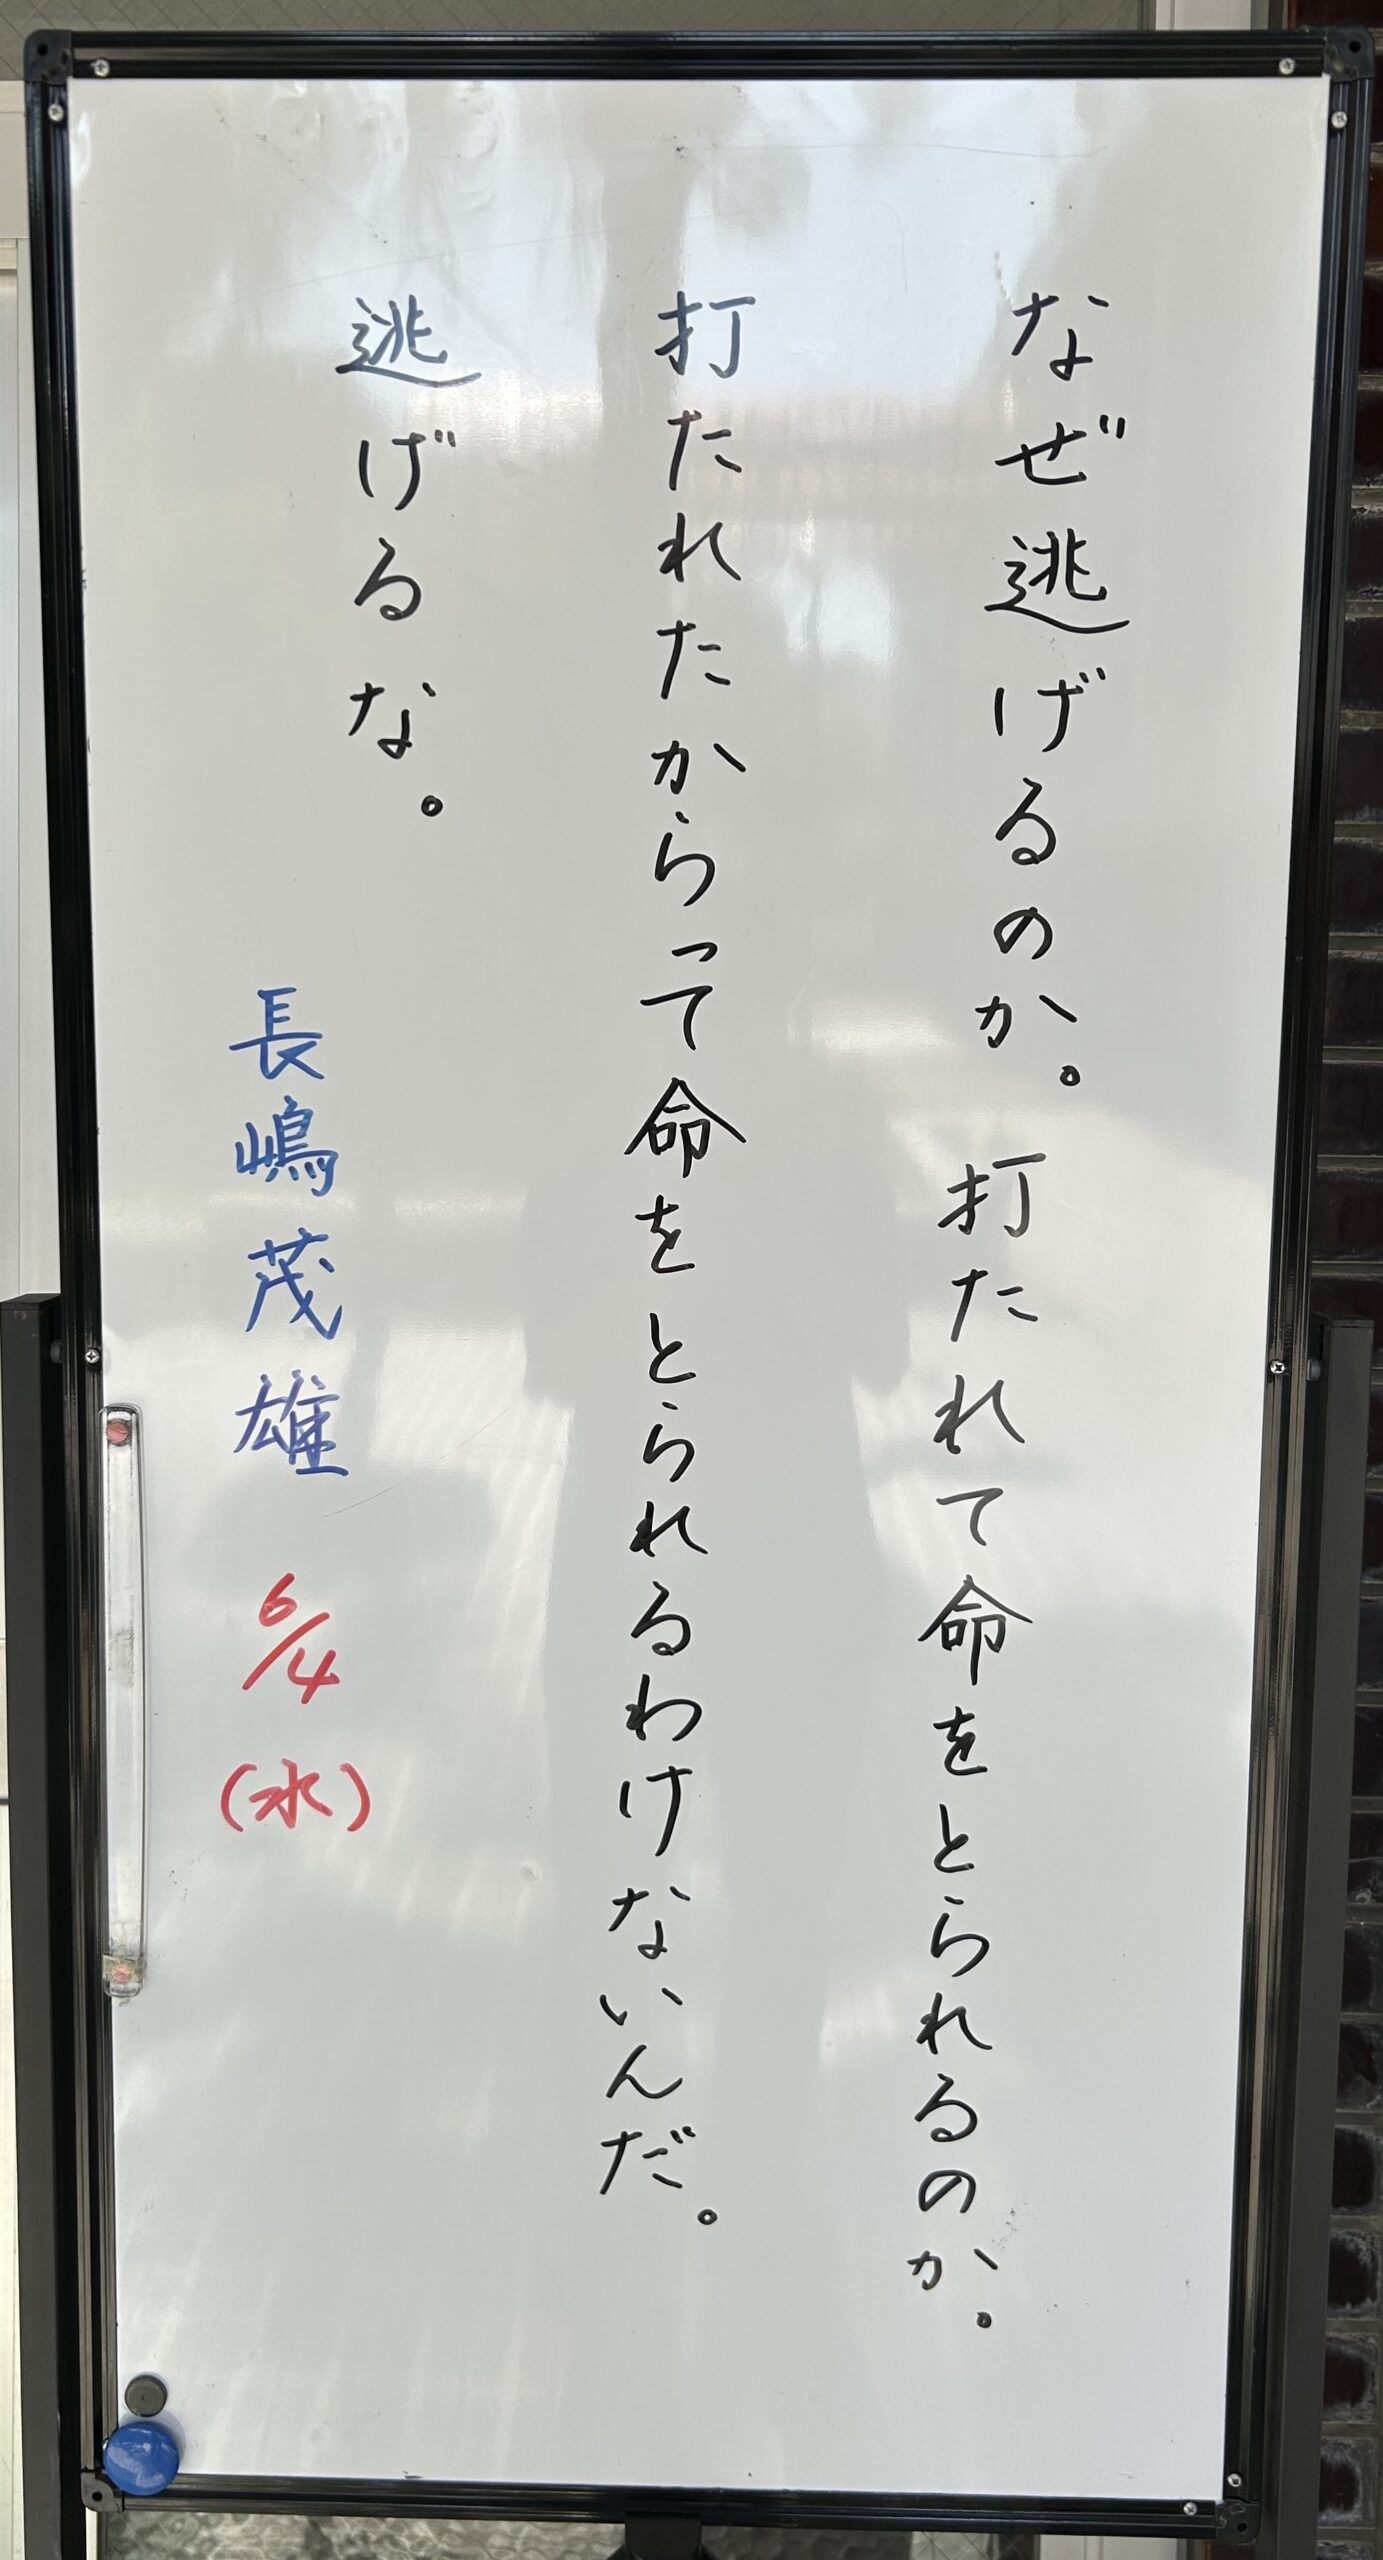 なぜ逃げるのか。打たれて命をとられるのか。
打たれたからって命をとられるわけないんだ。
逃げるな。
長嶋茂雄 6/4(水)